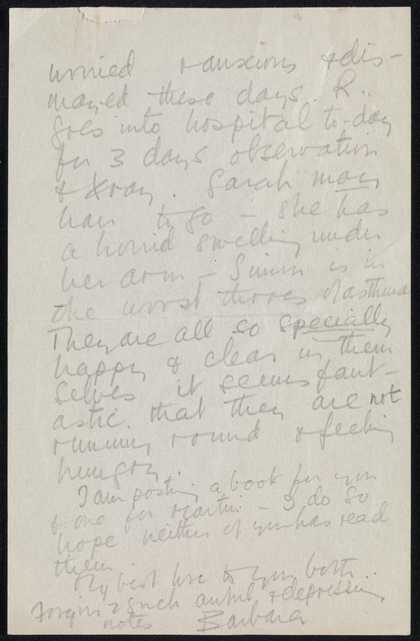 worried & anxious & dis-
mayed these days. R.
goes into hospital to-day
for 3 days observation
& Xray. Sarah may
have to go - she has
a horrid swelling under
her arm - Simon is in
the worst throes of asthma
They are all so specially
happy & clear in them
selves it seems fant-
astic that they are not
running round & feeling
hungry.
I am posting a book for you
& one for Martin - I do so
hope neither of you has read
them.
My best love to you both..
Forgive such awful & depressing
notes Barbara